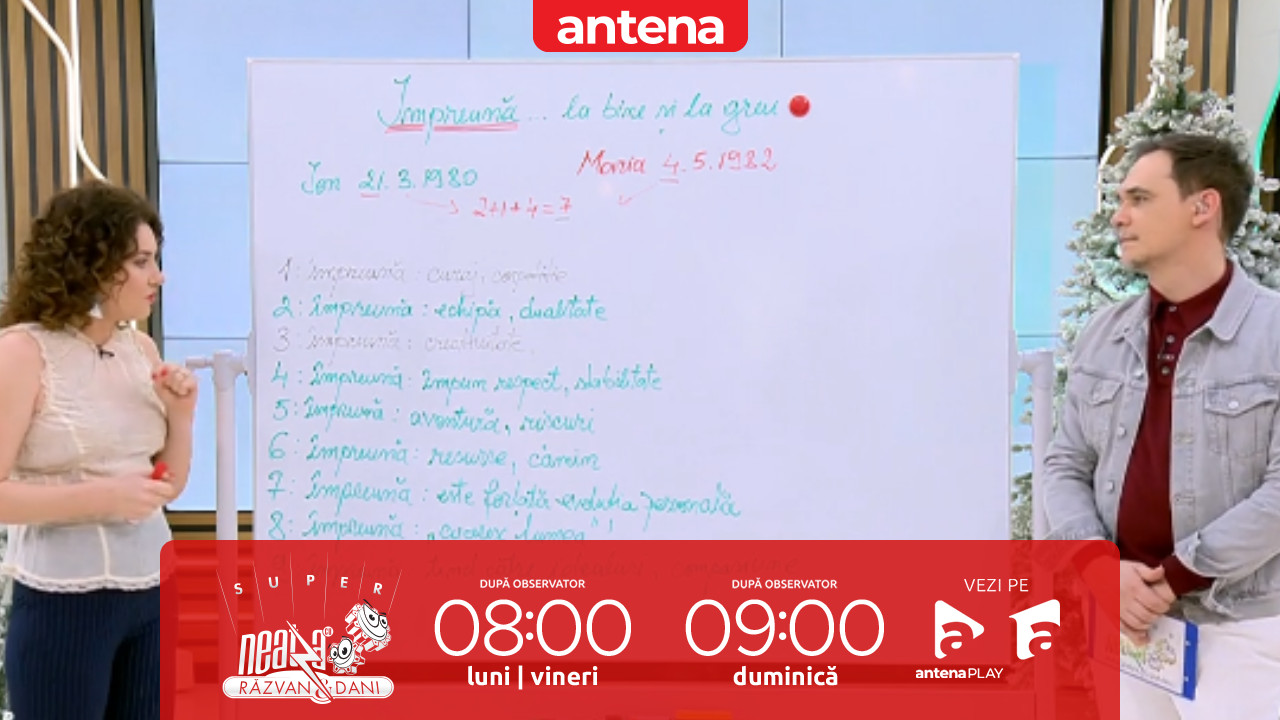 antena
Împreună... la bine și la greu
Ion 21.3.1980
Maria 4.5.1982
2+1+4=7
1: împreună: curaj,
2: împreună: echipă, dualitate
3: împreună: creativitate
4: Împreună: Impun respect, stabilitate
5: împreună: aventură, riscuri
6: împreună: resurse, cămin
7: împreună: este forțată evoluția personală
8: împreună: lumea
SUPER
neatza
RĂZVAN & DANI
DUPĂ OBSERVATOR
08:00
luni | vineri
DUPĂ OBSERVATOR
09:00
duminică
VEZI PE
a a
antenaPLAY